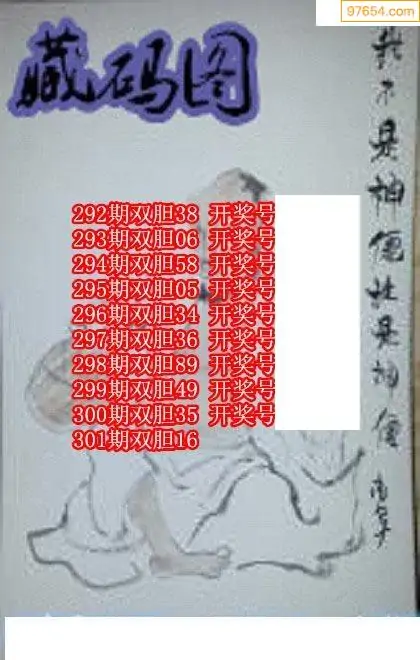 97654.com
藏码图
292期双胆38 开奖号
293期双胆06 开奖号
294期双胆58 开奖号
295期双胆05 开奖号
296期双胆34 开奖号
297期双胆36 开奖号
298期双胆89 开奖号
299期双胆49 开奖号
300期双胆35 开奖号
301期双胆16
不是神 是神